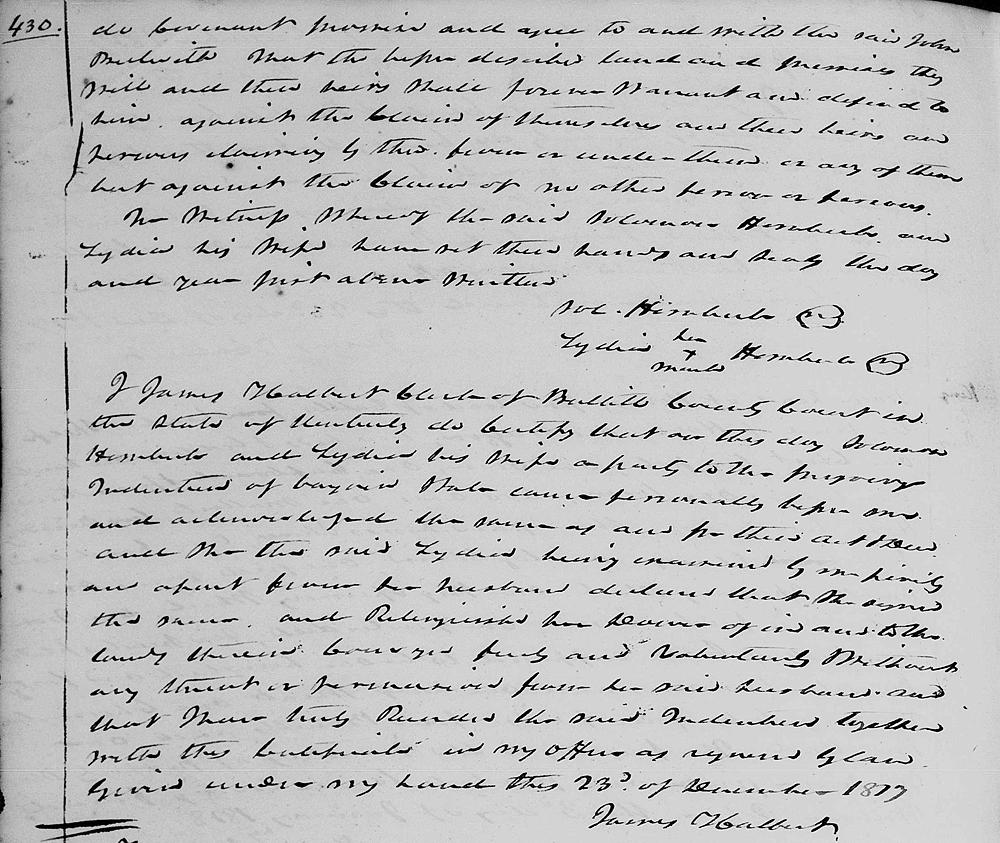 430.
do Covenant promise and agree to and with the said John
Beckwith that the before described land and premises they
will and their heirs shall forever Warrant and defend to
him against the Claim of themselves and their heirs and
persons claiming by them from or under them or any of them
but against the Claim of no other person or persons.
In Witness Whereof the said Solomon and
Lydia his Wife have set their hands and seals the day
and year first above Written
Sol.
Lydia her
mark
I James Halbert Clerk of Bullitt County Court in
the State of Kentucky do Certify that on this day Solomon
and Lydia his Wife a party to the foregoing
Indenture of bargain Sale came personally before me
and acknowledged the same as and for their act & Deed
and the the said Lydia being examined by me privily
and apart from her husband declared that she signed
the same and Relinquished her Dower of in and to the
lands therein Conveyed freely and Voluntarily Without
any threat or persuasion from her said husband and
that I have truly Recorded the said Indenture together
with this Certificate in my Office as required by Law
Given under my hand this 23d of December 18
James Halbert